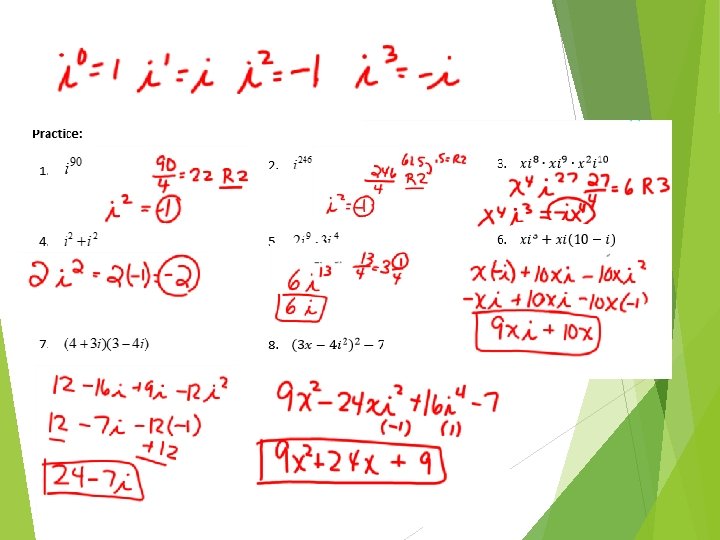 i⁰=1 i¹=i i²=-1 i³=-i
Practice:
1. i⁹⁰
90/4 = 22 R2
i² = -1
2. i²⁴⁶
246/4 61.5 .5=R2
R2
i²=-1
3. xi⁸ · xi⁹ · x²i¹⁰
x⁴i²⁷ 27/4 = 6 R3
x⁴i³ = -ix⁴
4. i² + i²
2i² = 2(-1) = -2
5. 2i⁹ · 3i⁴
6i¹³ 13/4 = 3 1/4
6i
6. xi³ + xi(10 − i)
x(-i) + 10xi - 10xi²
-xi + 10xi - 10x(-1)
9xi + 10x
7. (4 + 3i)(3 − 4i)
12 - 16i + 9i - 12i²
12 - 7i - 12(-1)
+12
24-7i
8. (3x − 4i²)² − 7
9x² - 24xi² + 16i⁴ - 7
(-1) (1)
9x² + 24x + 9